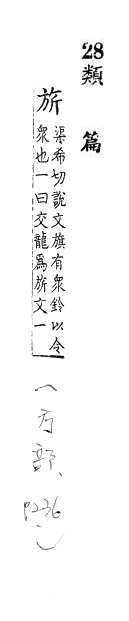 28類篇
旂
渠希切說文旗有衆鈴以令
衆也一曰交龍爲旂文一
(方部、
P236)